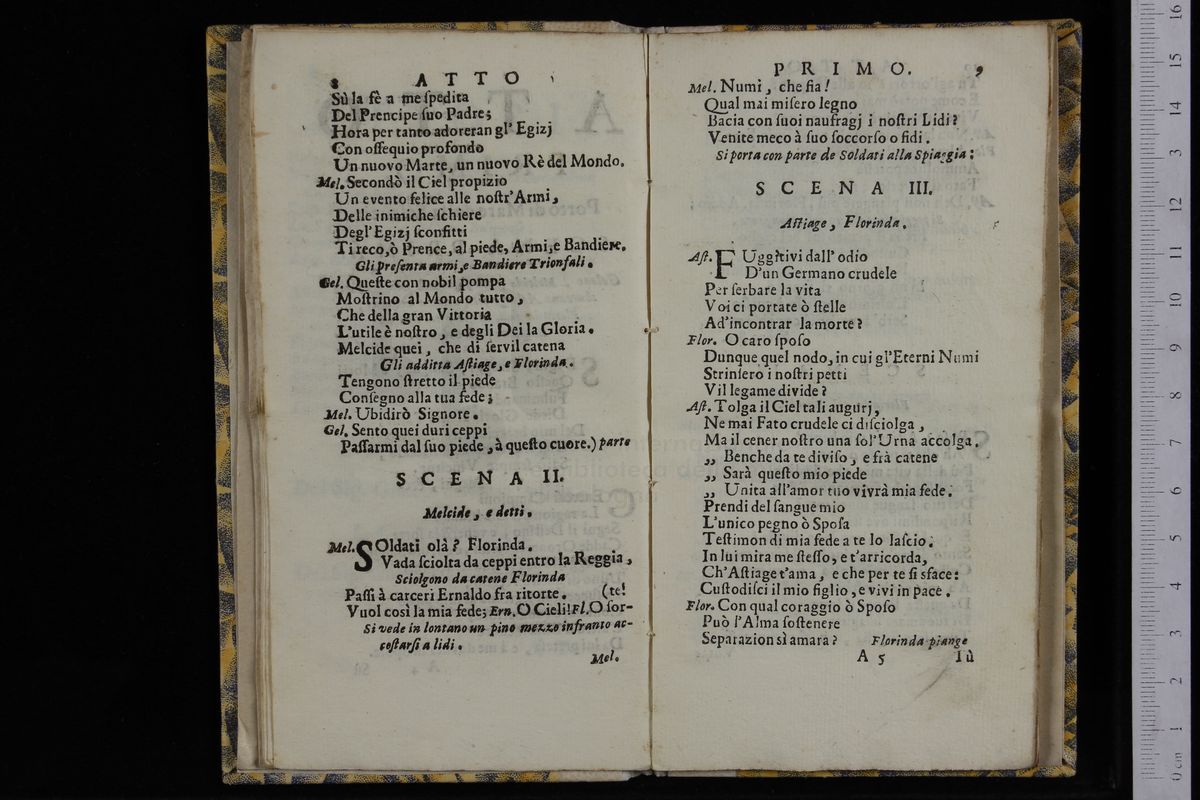 8 ATTO
Sù la fè a me ſpedita
Del Prencipe ſuo Padre;
Hora per tanto adoreran gl' Egizj
Con oſſequio profondo
Un nuovo Marte, un nuovo Rè del Mondo.
Mel. Secondò il Ciel propizio
Un evento felice alle noſtr'Armi,
Delle inimiche ſchiere
Degl' Egizj ſconfitti
Ti reco, ò Prence, al piede, Armi, e Bandiere.
Gli preſenta armi, e Bandiere Trionfali.
Gel. Queſte con nobil pompa
Moſtrino al Mondo tutto,
Che della gran Vittoria
L'utile è noſtro, e degli Dei la Gloria.
Melcide quei, che di ſervil catena
Gli additta Aſtiage, e Florinda.
Tengono ſtretto il piede
Conſegno alla tua fede;
Mel. Ubidirò Signore.
Gel. Sento quei duri ceppi
Paſſarmi dal ſuo piede, à queſto cuore.) parte
SCENA II.
Melcide, e detti.
Mel. SOldati olà? Florinda.
Vada ſciolta da ceppi entro la Reggia,
Sciolgono da catene Florinda
Paſſi à carceri Ernaldo fra ritorte. (te!
Vuol così la mia fede; Ern. O Cieli! Fl. O ſor-
Si vede in lontano un pino mezzo infranto ac-
coſtarſi a lidi.
Mel.
PRIMO. 9
Mel. Numi, che fia!
Qual mai miſero legno
Bacia con ſuoi naufragj i noſtri Lidi?
Venite meco à ſuo ſoccorſo o fidi.
Si porta con parte de Soldati alla Spiaggia:
SCENA III.
Aſtiage, Florinda.
Aſt. FUggitivi dall' odio
D'un Germano crudele
Per ſerbare la vita
Voi ci portate ò ſtelle
Ad'incontrar la morte?
Flor. O caro ſpoſo
Dunque quel nodo, in cui gl'Eterni Numi
Strinſero i noſtri petti
Vil legame divide?
Aſt. Tolga il Ciel tali augurj,
Ne mai Fato crudele ci diſciolga,
Ma il cener noſtro una ſol'Urna accolga.
,, Benche da te diviſo, e frà catene
,, Sarà queſto mio piede
,, Unita all'amor tuo vivrà mia fede.
Prendi del ſangue mio
L'unico pegno ò Spoſa
Teſtimon di mia fede a te lo laſcio.
In lui mira me ſteſſo, e t'arricorda,
Ch'Aſtiage t'ama, e che per te ſi sface:
Cuſtodiſci il mio figlio, e vivi in pace.
Flor. Con qual coraggio ò Spoſo
Può l'Alma ſoſtenere
Separazion sì amara? Florinda piange
A 5 Tù